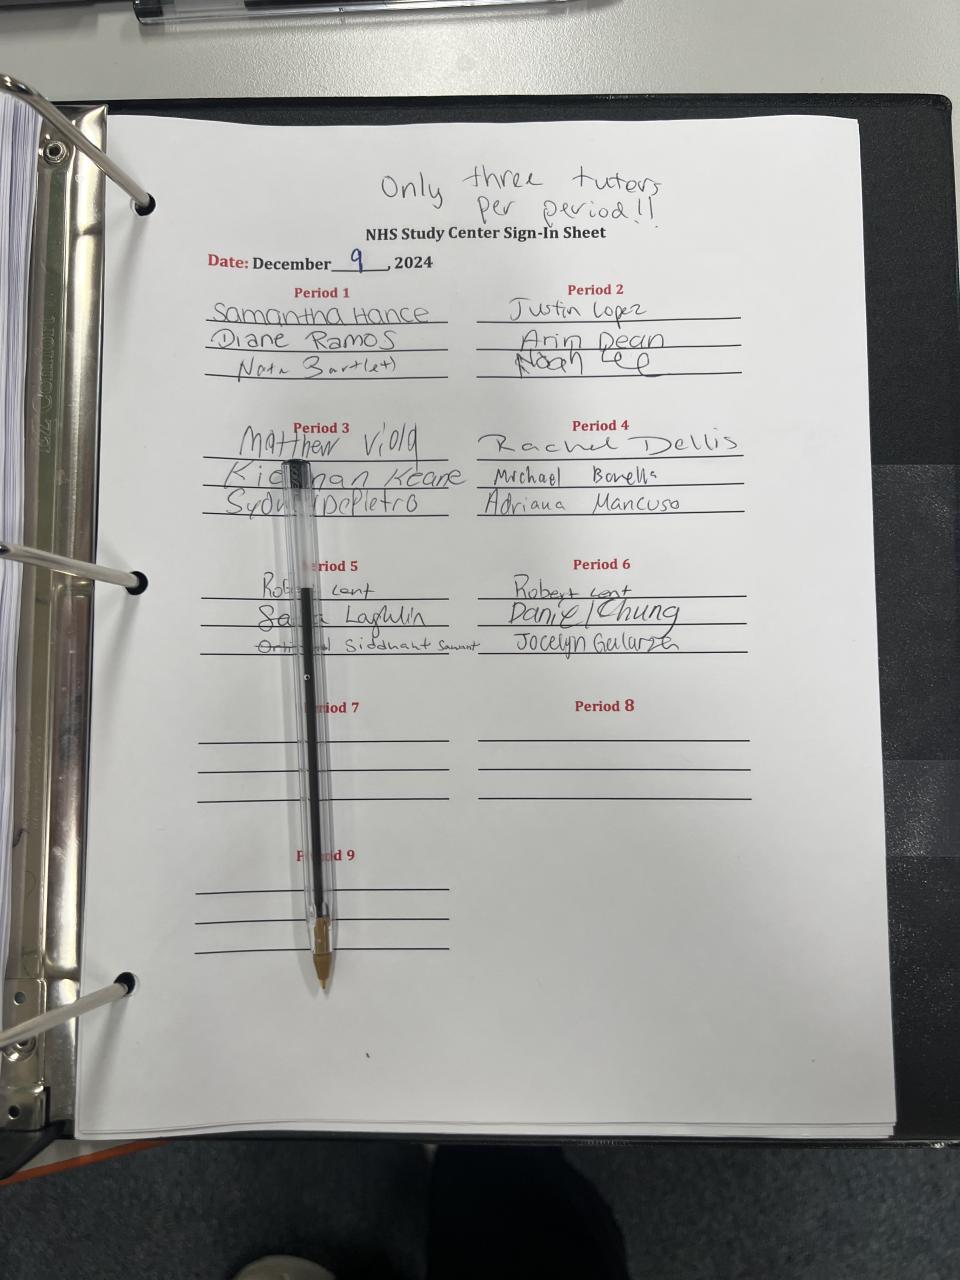 Only three tutors
per period!!
NHS Study Center Sign-In Sheet
Date: December 9, 2024
Period 1
Samantha Hance
Diane Ramos
Period 2
Justin Lopez
Arim Dean
Noah Lee
Period 3
Matthew Viola
Keane
DePietro
Period 4
Rachel Dellis
Michael Bonella
Adriana Mancuso
riod 5
Lent
Laghlin
Siddhant Sawant
Period 6
Robert Lent
Daniel Chung
Jocelyn
riod 7
Period 8
od 9